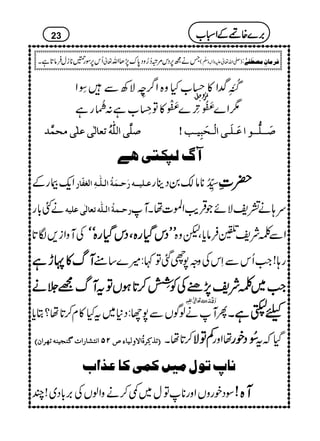 23 برے خاتمے کے اسباب
فرمانِ مصطَفٰے (صلی اللہ تعالیٰ علیہ واٰلہٖ وسلم) جس نے مجھ پر دس مرتبہ دُرُود پاک پڑھا اللہ تعالیٰ اُس پر سو رحمتیں نازل فرماتا ہے۔
گُنَہِ گدا کا حساب کیا وہ اگرچِہ لاکھ سے ہیں سِوا
مگر اے عَفُوّ ترے عَفْو کا تو حساب ہے نہ شمار ہے
صَلُّوا عَلَی الْحَبِیب ! صلَّی اللّٰہُ تعالٰی علٰی محمَّد
آگ لپکتی ہے
حضرتِ سیِّدُنا مالِک بن دینار علیہ رَحمَۃُ اللّٰہِ الغَفّار ایک بیمار کے
سرہانے تشریف لائے جو قریبُ الموت تھا۔ آپ رحمۃ اللّٰہ تعالٰی علیہ نے کئی بار
اسے کلمہ شریف تلقین فرمایا، لیکن وہ ’’دس گیارہ، دس گیارہ‘‘ کی آوازیں لگاتا
رہا! جب اُس سے اِس کی وجہ پوچھی گئی تو کہا: میرے سامنے آگ کا پہاڑ ہے
جب میں کلمہ شریف پڑھنے کی کوشش کرتا ہوں تو یہ آگ مجھے جلانے
کیلئے لپکتی ہے۔ پھر آپ نے لوگوں سے پوچھا: دنیا میں یہ کیا کام کرتا تھا؟ بتایا
گیا کہ یہ سُود خور تھا اور کم تولا کرتا تھا۔ (تذکرۃُ الاولیاء ص ۵۲ انتشارات گنجینہ تہران)
ناپ تول میں کمی کا عذاب
آہ! سود خوروں اور ناپ تول میں کمی کرنے والوں کی بربادی! چند